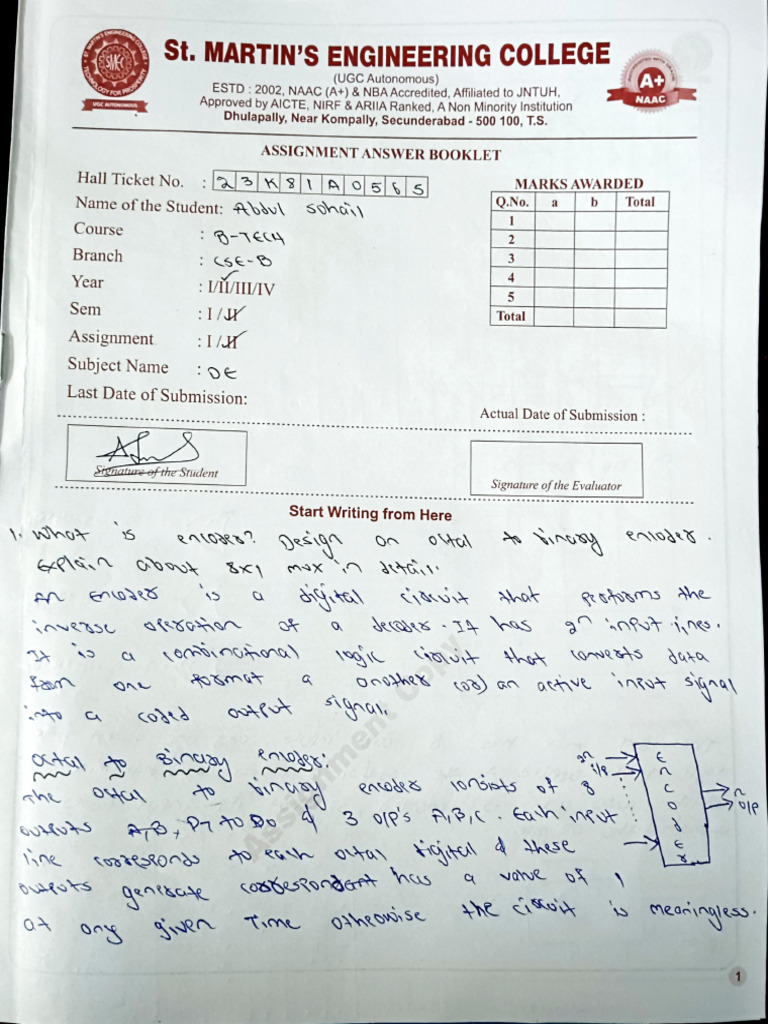 St. MARTIN'S ENGINEERING COLLEGE
(UGC Autonomous)
ESTD : 2002, NAAC (A+) & NBA Accredited, Affiliated to JNTUH,
Approved by AICTE, NIRF & ARIIA Ranked, A Non Minority Institution
Dhulapally, Near Kompally, Secunderabad - 500 100, T.S.
ST. MARTIN'S ENGINEERING COLLEGE
SMEC
TECHNOLOGY FOR PROSPERITY
UGC AUTONOMOUS
A+
NAAC
ASSIGNMENT ANSWER BOOKLET
Hall Ticket No. : 23K81A0565
Name of the Student: Abdul sohail
Course : B-TECH
Branch : CSE-B
Year : I/II/III/IV
Sem : I / II
Assignment : I / II
Subject Name : DE
Last Date of Submission:
MARKS AWARDED
Q.No. a b Total
1
2
3
4
5
Total
Actual Date of Submission :
Signature of the Student
Signature of the Evaluator
Start Writing from Here
1. What is encoder? Design an octal to binary encoder.
Explain about 8x1 mux in detail.
An Encoder is a digital circuit that performs the
inverse operation of a decoder. It has 2^n input lines.
It is a combinational logic circuit that converts data
from one format a another (or) an active input signal
into a coded output signal.
octal to Binary encoder:
The octal to binary encoder consists of 8
outputs A,B, D7 to D0 & 3 o/p's A,B,C. Each input
line corresponds to each octal digital & these
outputs generate correspondent has a value of 1
at any given Time otherwise the circuit is meaningless.
2^n
i/p
Encoder
n
o/p
Assignment Copy
1